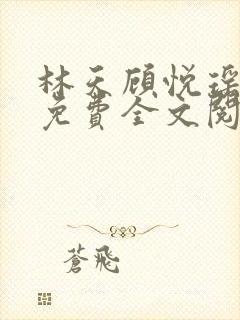 林天顾悦瑶
免費全文閱
蒼飛